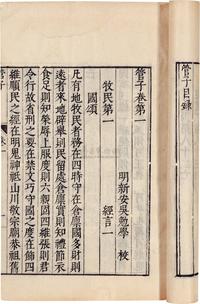 管子卷第一
明新安吳勉學 校
牧民第一 經言一
國頌
凡有地牧民者務在四時守在倉廩國多財則
遠者來地辟舉則民留處倉廩實則知禮節衣
食足則知榮辱上服度則六親固四維張則君
令行故省刑之要在禁文巧守國之度在飾四
維順民之經在明鬼神祗山川敬宗廟恭祖舊
管子目錄